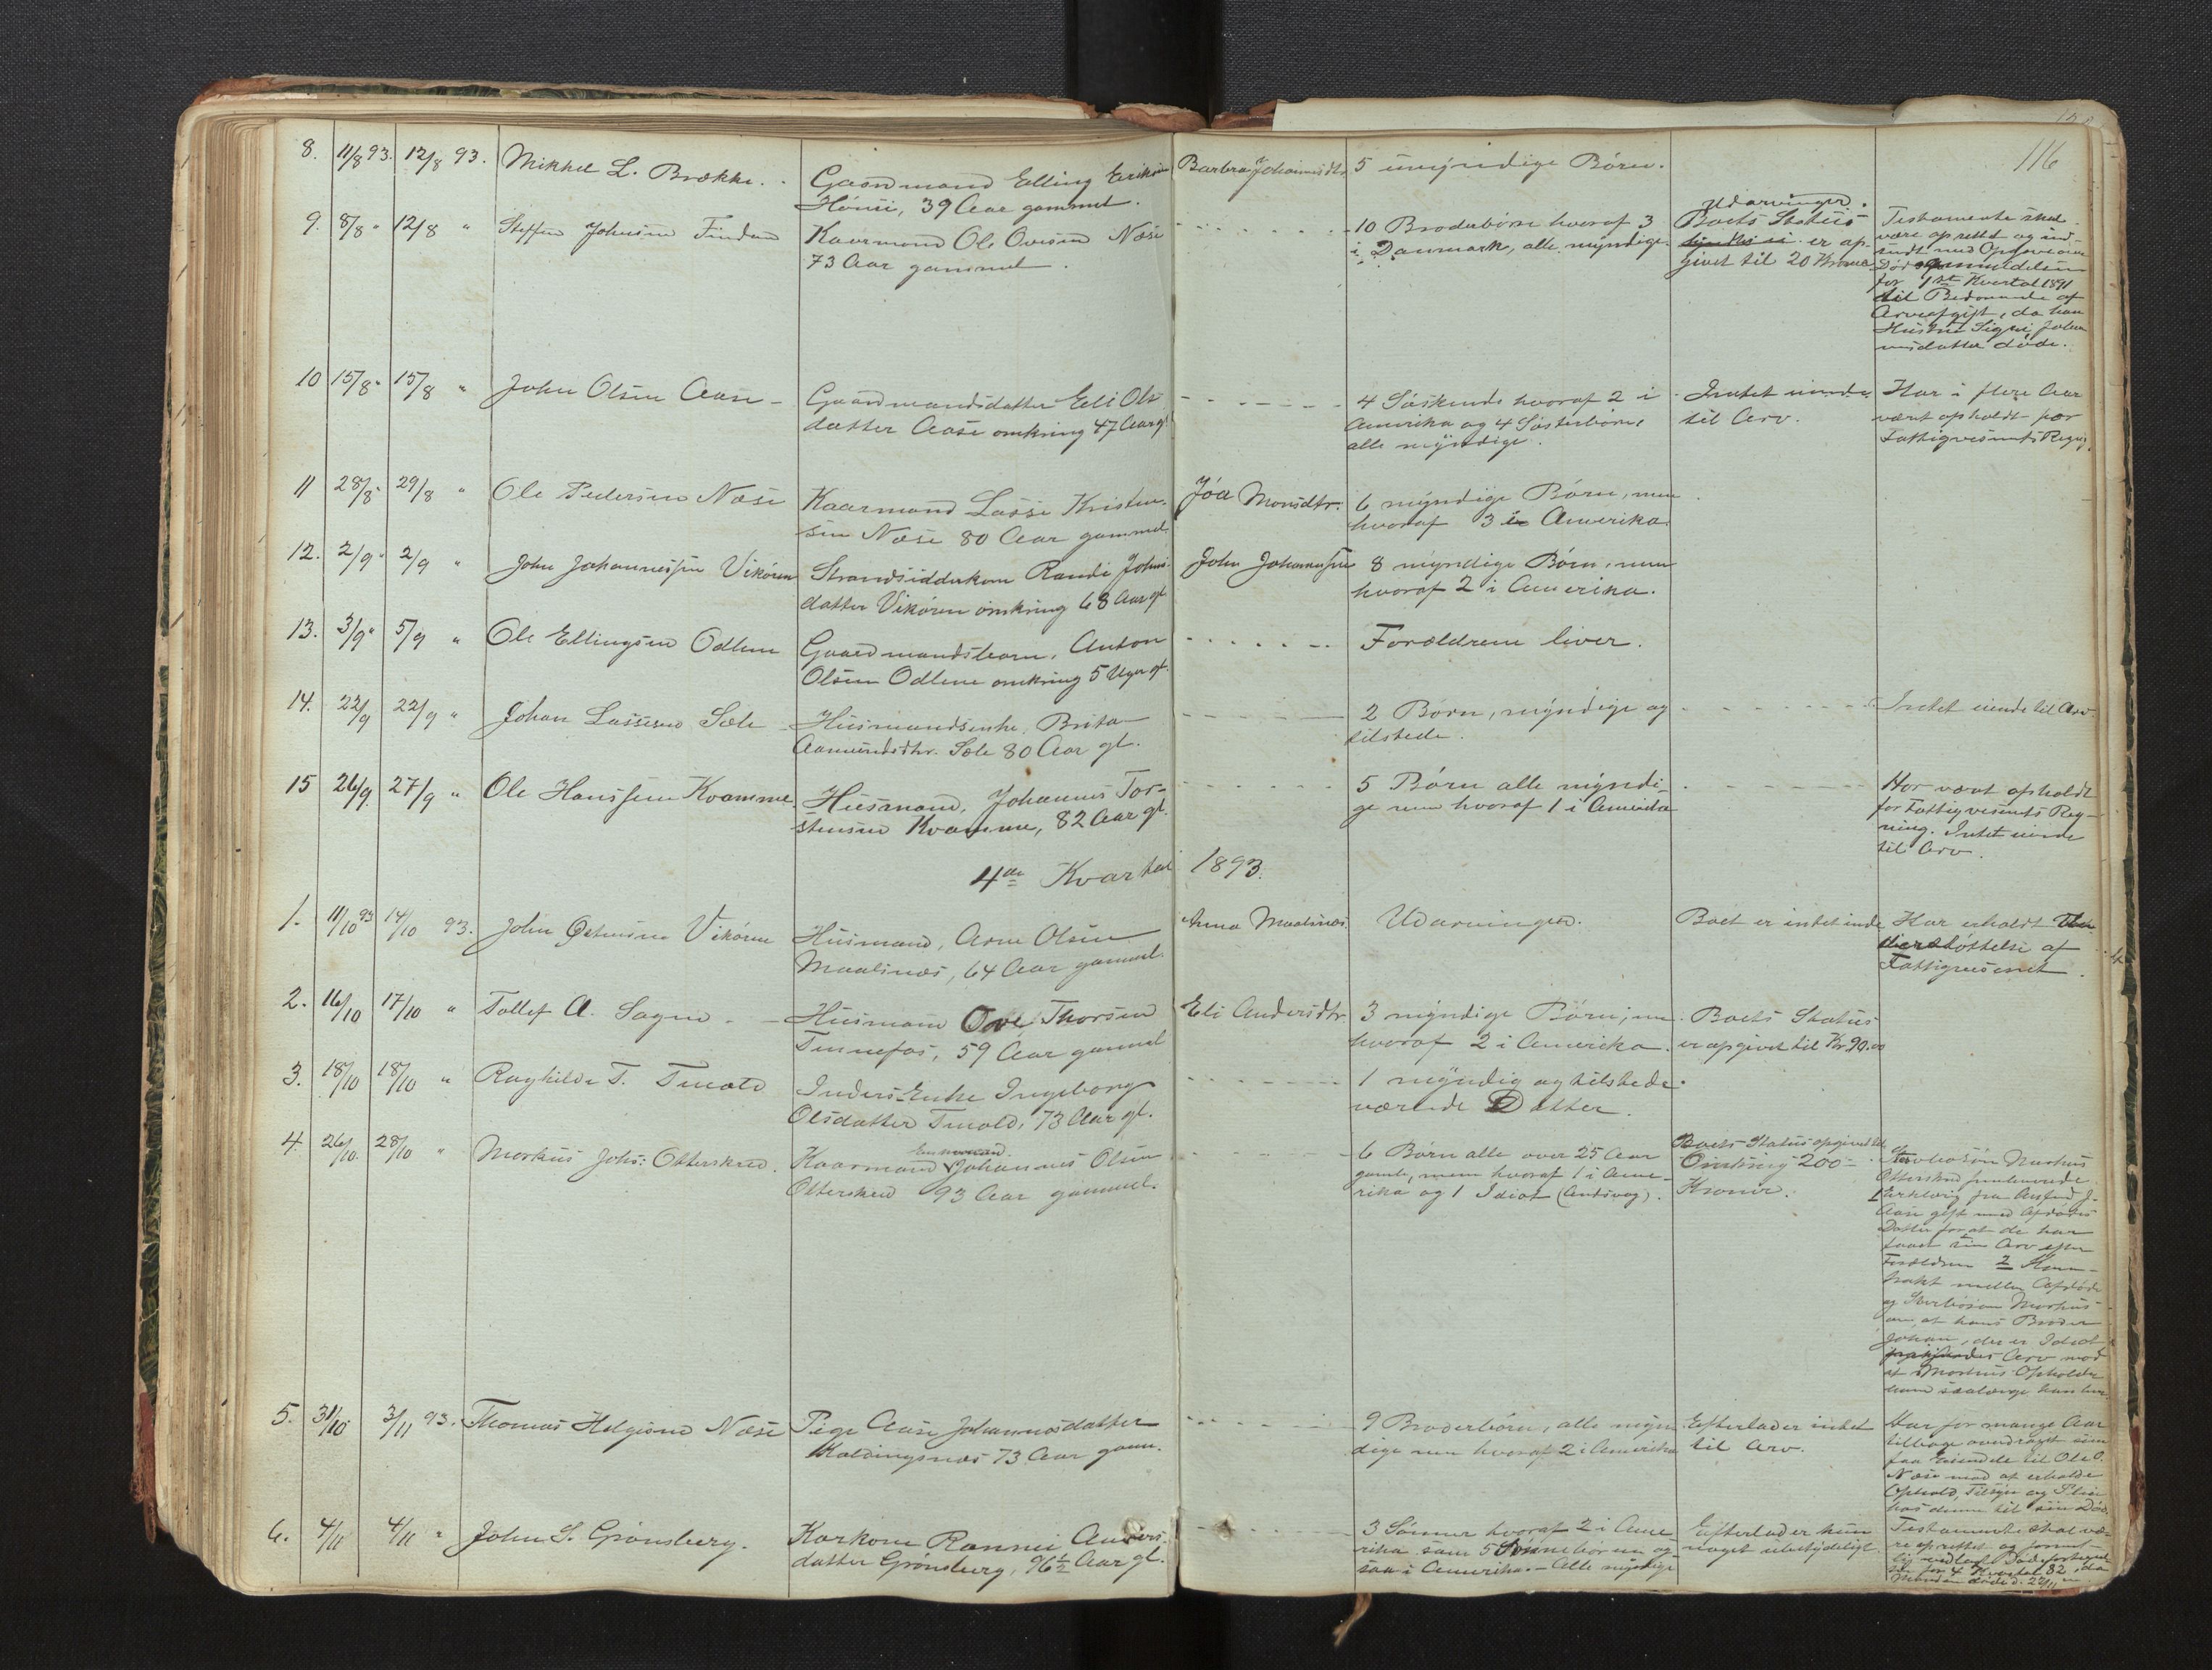 116
8. 11/8 93. 12/8 93. Mikkel L. Brække. Gaardmand Elling Erikssen Barbra Johannisdtr 5 umyndige Børn.
Hønsi, 39 Aar gammel.
9. 8/8 " 12/8 " Steffen Johnsen Findan Kaarmand Ole Ovesen Næse 10 Broderbørn hvoraf 3 Udarvinger. Testamente skal
73 Aar gammel. i Danmark, alle myndige. Boets Status være oprettet og ind-
er op- sendt med Opgaverne
givet til 20 Kroner
for 1ste Kvartal 1891
til Bedømmelse af
Arveafgift, da han
Hustru Signi Johan-
nesdatter døde.
10 15/8 " 15/8 " John Olsen Aase - Gaardmandsdatter Eli Ols- 4 Søskende hvoraf 2 i Intet eiende Har i flere Aar
datter Aase omkring 47 Aar gl. Amerika og 4 Søsterbørn, til Arv. været opholdt paa
alle myndige. Fattigvesenets Regng.
11 28/8 " 29/8 " Ole Pedersen Næse Kaarmand Lasse Kristen- Jóa Monsdtr. 6 myndige Børn, men
sen Næse 80 Aar gammel. hvoraf 3 i Amerika.
12. 2/9 " 2/9 " John Johannessen Vikøren Strandsidderkone Randi Johns- John Johannessen 8 myndige Børn, men
datter Vikøren omkring 68 Aar gl. hvoraf 2 i Amerika.
13. 3/9 " 5/9 " Ole Ellingsen Odlem Gaardmandsbarn, Anton Forældrene liver.
Olsen Odlene omkring 5 Uger gl.
14. 22/9 22/9 " Johan Lassesen Sæle - Husmandsenke, Brita 2 Børn, myndige og Intet eiende til Arv.
Aamundsdtr. Sæle 80 Aar gl. tilstede.
15 26/9. 27/9 " Ole Hanssen Kvamme. Husmand, Johannes Tor- 5 Børn alle myndi- Har vært opholdt
stensen Kvamme, 82 Aar gl. ge men hvoraf 1 i Amerika for Fattigvesenets Reg-
ning. Intet eiende
til Arv.
4de Kvartal 1893.
1. 11/10 93 14/10 93. John Østensen Vikøren Husmand, Arne Olsen Anna Maalsnæs. Udarvinger. Boet er intet eiende Har erholdt
Maalsnæs, 64 Aar gammel. støttelse af
Fattigvesenet.
2. 16/10 17/10 " Tollef A. Sagen - Husmand Ove Thorsen Eli Andersdtr. 3 myndige Børn, men Boets Status
Tennefos, 59 Aar gammel hvoraf 2 i Amerika. er opgivet til Kr 90.00
3. 18/10 18/10 " Raghilde T. Tuæld Inders Enke Ingeborg 1 myndig og tilstede-
Olsdatter Tuæld, 73 Aar gl. værende Datter.
4. 26/10. 28/10 " Markus Johs: Otterskred. Kaarmand Enkemand Johannes Olsen 6 Børn alle over 25 Aar Boets Status opgivet til
Otterskred 93 Aar gammel. gamle, men hvoraf 1 i Ame- Omkring 200 -
rika og 1 Idiot (Andsvag). Kroner. Sterbosøn Markus
Otterskred fremleverede
Erklæring fra
Aase gift med Afdødes
Datter for at de har
faaet sin Arv efter
Forældrene 2
trakt mellem Afdøde
og Sterbosøn Markus
om, at hans Broder
Johan, der er Idiot
Arv mod
at Markus Opholder
ham saalænge han lever
5. 31/10 3/11 93. Thomas Helgesen Næse Pige Aase Johannesdatter 9 Broderbørn, alle myn- Efterlader intet Har for mange Aar
Koldingsnæs 73 Aar gam. dige men hvoraf 2 i Amerika til Arv. tilbage overdraget sine
faa Eiendele til Ole O.
Næse mod at erholde
Ophold, Tilsyn og Pleie
hos denne til sin Død.
6. 4/11 4/11 " John S. Grønsberg. Karkone Rannei Anders- 3 Sønner hvoraf 2 i Ame- Efterlader kun Testamente skal væ-
datter Grønsberg, 76 1/2 Aar gl. rika samt 5 Sønnebørn og- noget ubetydeligt re oprettet og
saa i Amerika. - Alle myndige
for 4 Kvartal 82, da
Manden døde d. 22/11